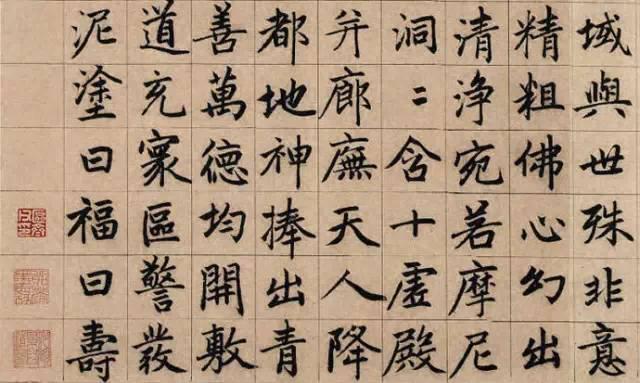 域與世殊非意
精粗佛心幻出
清淨宛若摩尼
洞〻含十虛殿
并廊廡天人降
都地神捧出青
善萬德均開敷
道充寰區警發
泥塗曰福曰壽